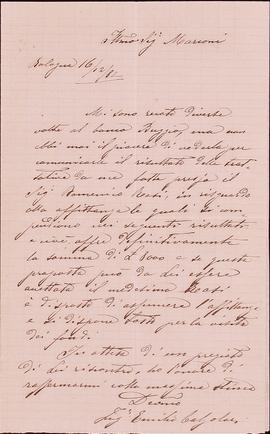 Sig. Marconi
Bologna 16/12/82
Mi sono recato diverse
volte al banco ma non
ebbi mai il piacere di vederla per
comunicarle il risultato delle trat-
tative da me fatte presso il
Sig. Domenico Rasi, in riguardo
alla affittanza le quali si com-
pendiano nei seguenti risultati
e cioè offre definitivamente
la somma di £ 8000 e se questa
proposta può da Lei essere
accettata il medesimo Rasi
è disposto di assumere l'affittanza
e si dispone tosto per la visita
dei fondi.
In attesa di un pregiato
di Lei riscontro, ho l'onore di
raffermarmi colla massima stima
Devmo
Emilio